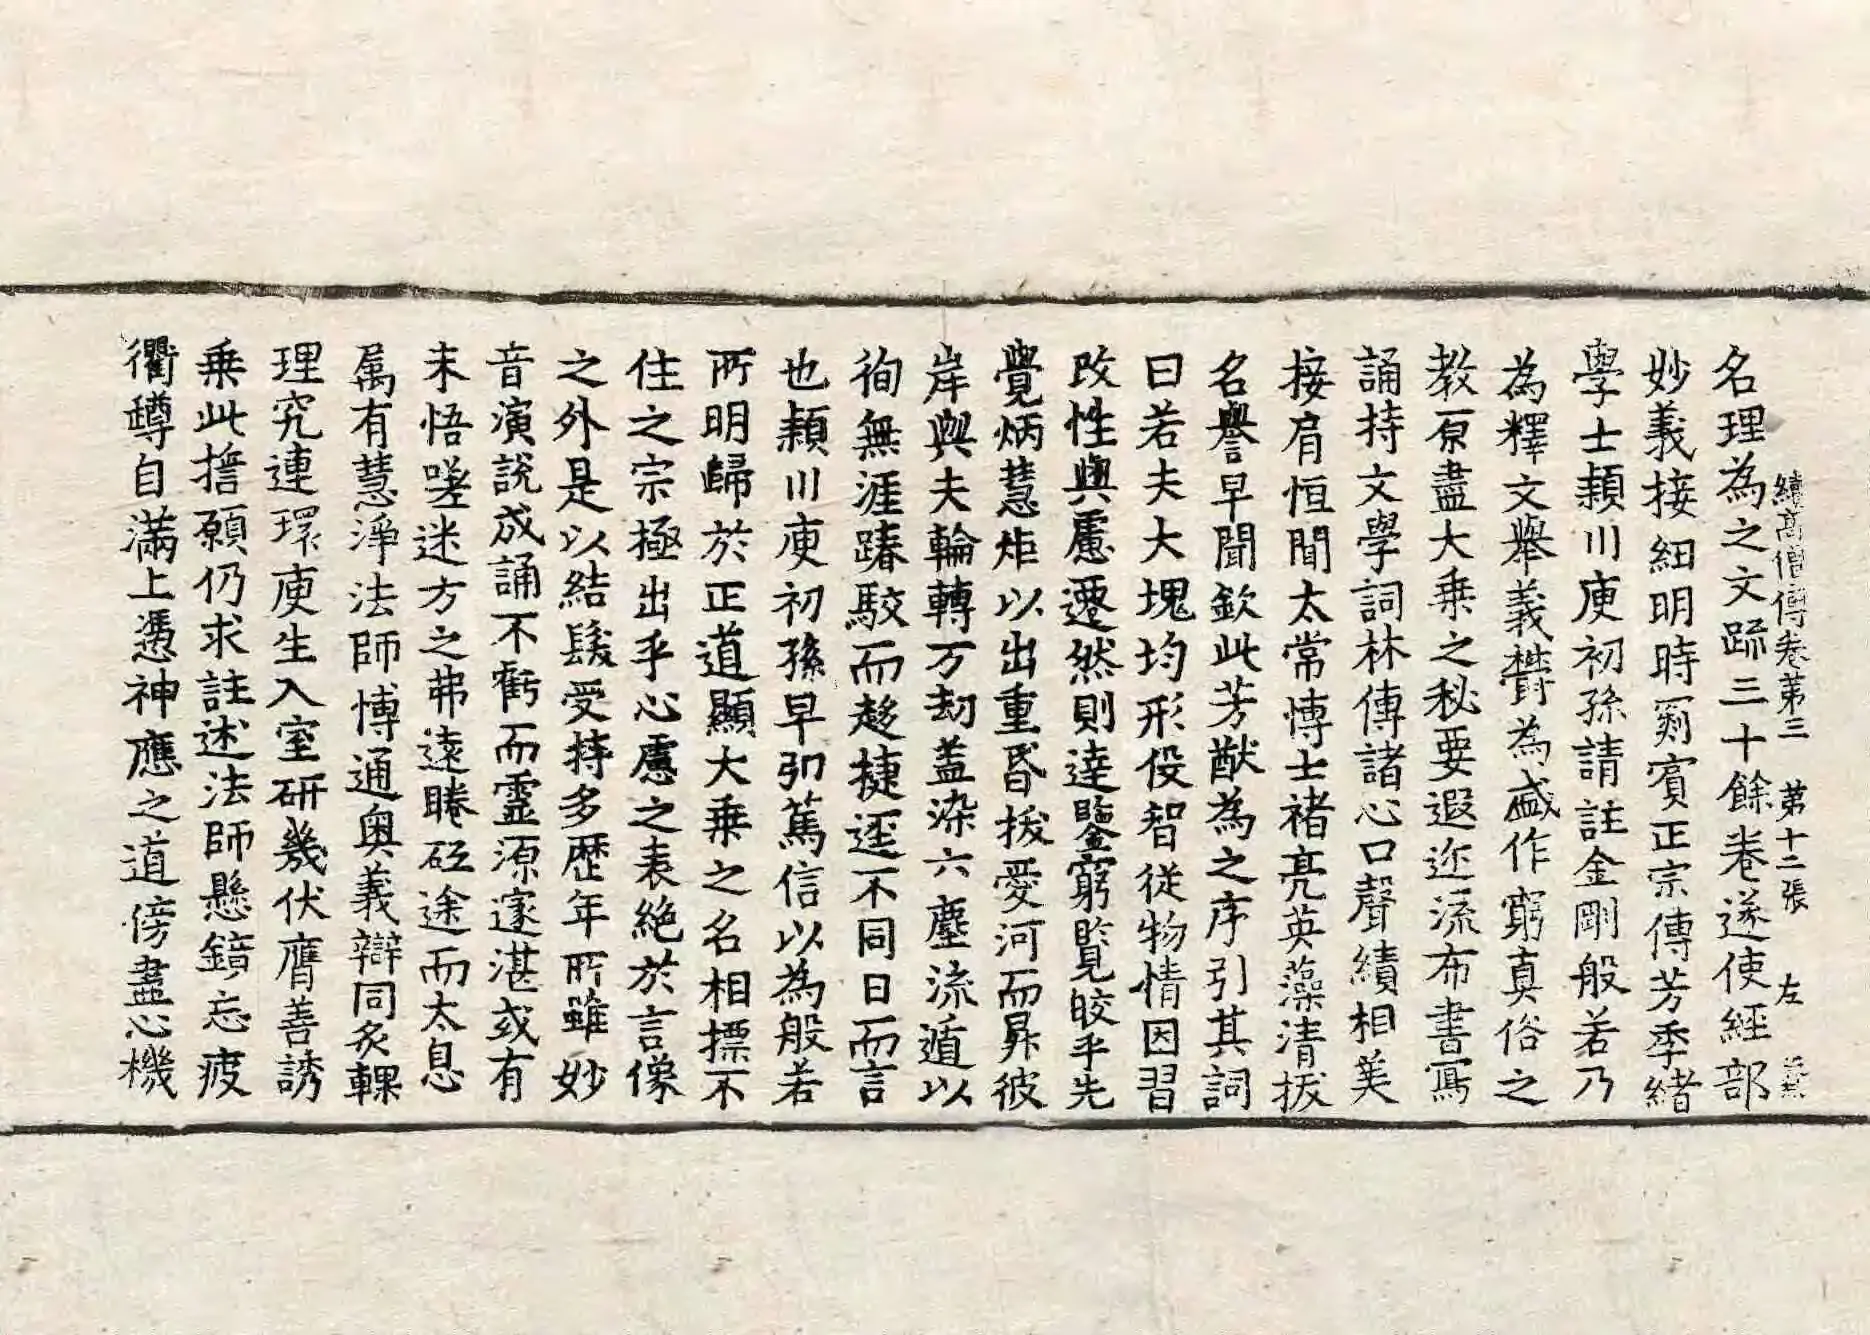 續高僧傳卷第三 第十二張 左
名理為之文䟽三十餘卷遂使經部
妙義接紐明時罽賓正宗傳芳季緒
學士頴川庾初孫請註金剛般若乃
為釋文舉義欝為盛作窮真俗之
教原盡大乗之秘要遐迩流布書寫
誦持文學詞林傳諸心口聲績相美
接肩恒聞太常愽士褚亮英藻清拔
名譽早聞欽此芳猷為之序引其詞
曰若夫大塊均形役智從物情因習
改性與慮遷然則達鑒窮覧皎乎先
覺炳慧炬以出重昏拔愛河而昇彼
岸與夫輪轉万劫盖染六塵流遁以
徇無涯踳駮而趍捷逕不同日而言
也頴川庾初孫早弘篤信以為般若
所明歸於正道顯大乗之名相摽不
住之宗極出乎心慮之表絶於言像
之外是以結髮受持多歴年所雖妙
音演說成誦不虧而靈源邃湛或有
未悟嗟迷方之弗遠睠砥途而太息
属有慧淨法師愽通奥義辯同炙輠
理究連環庾生入室研幾伏膺善誘
乗此誓願仍求註述法師懸鏡忘疲
衢罇自滿上憑神應之道傍盡心機